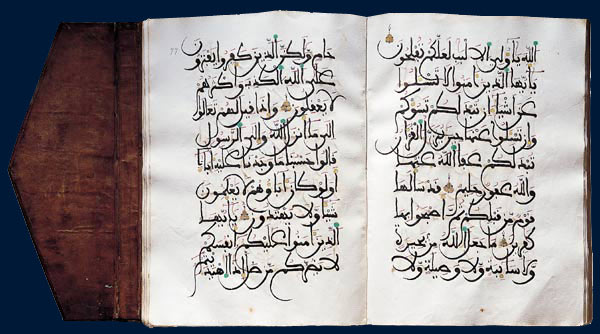 الله يا أولي الالبب لعلكم تفلحون
يأيها الذين ءامنوا لا تسئلوا
عن أشياء ان تبد لكم تسؤكم
وان تسئلوا عنها حين ينزل القرءان
تبد لكم عفا الله عنها
والله غفور حليم قد سألها
قوم من قبلكم ثم أصبحوا بها
كفرين ما جعل الله من بحيرة
ولا سائبة ولا وصيلة ولا
حام ولكن الذين كفروا يفترون
على الله الكذب وأكثرهم
لا يعقلون وإذا قيل لهم تعالوا
الى ما أنزل الله والى الرسول
قالوا حسبنا ما وجدنا عليه ءاباءنا
أولو كان ءاباؤهم لا يعلمون
شيئا ولا يهتدون يأيها
الذين ءامنوا عليكم أنفسكم
لا يضركم من ضل إذا اهتديتم